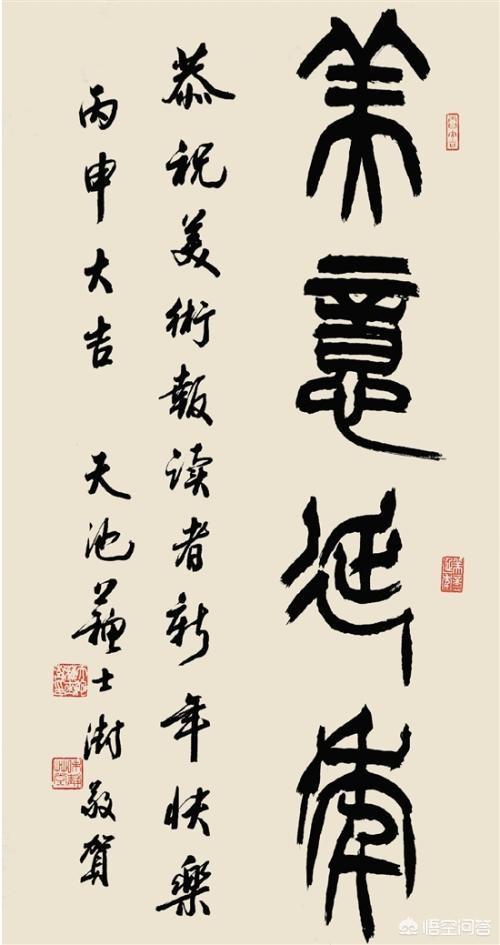 美意延年
恭祝美術報读者新年快樂
丙申大吉 天池蘇士澍敬賀
悟空问答